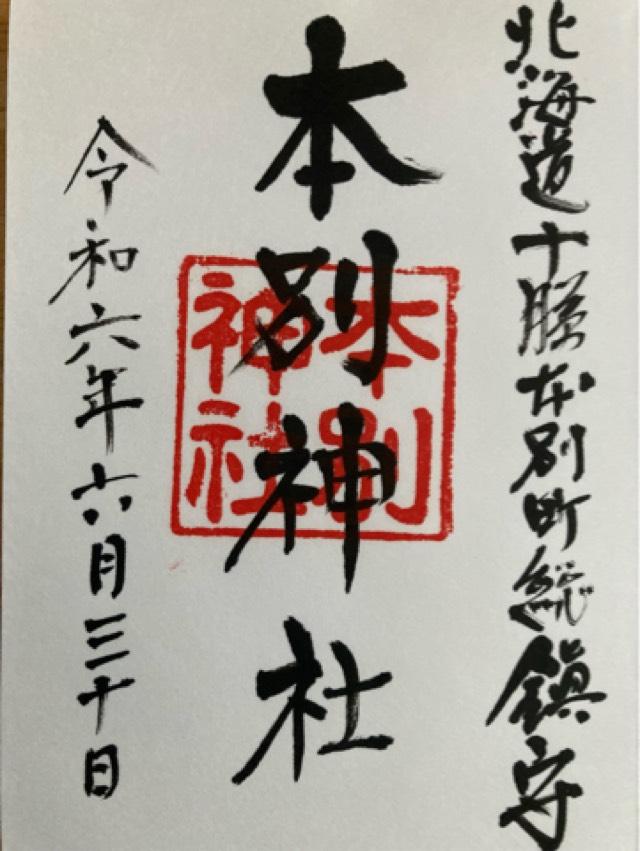 北海道十勝本別町総鎮守
本別神社
本別
神社
令和六年六月三十日